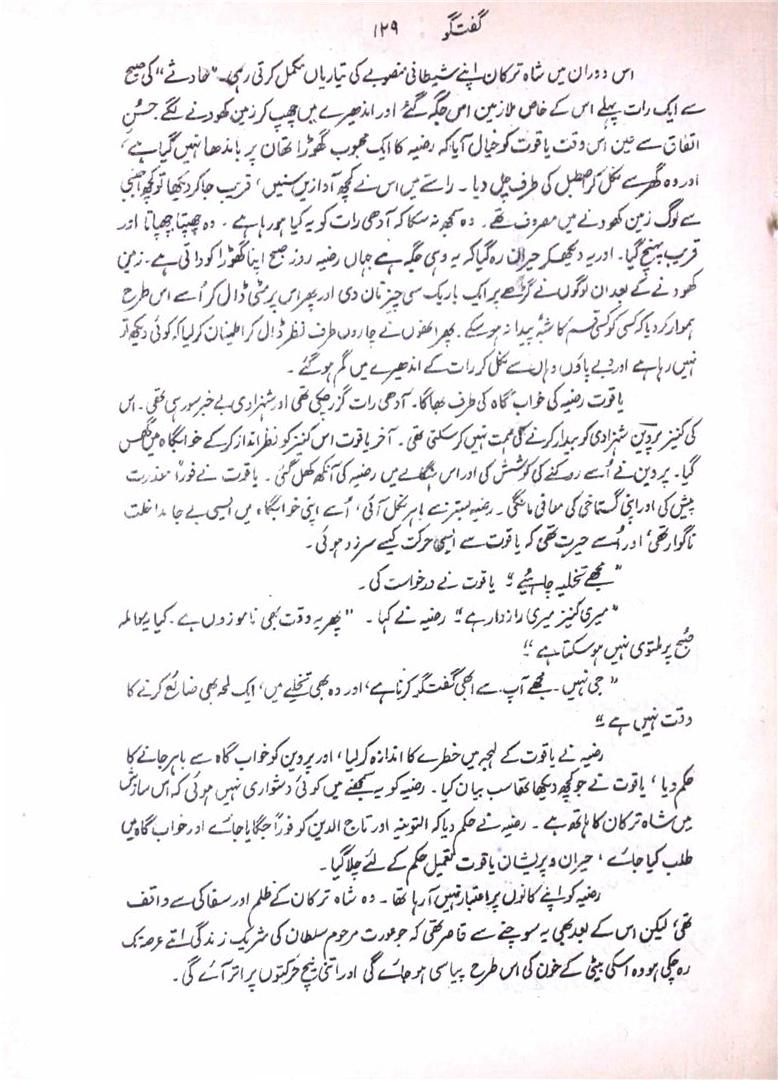 گفتگو ۱۲۹
اس دوران میں شاہ ترکان اپنے شیطانی منصوبے کی تیاریاں مکمل کرتی رہی۔ ”حادثے“ کی صبح
سے ایک رات پہلے اس کے خاص ملازمین اس جگہ گئے اور اندھیرے میں چھپ کر زمین کھودنے لگے۔ حسنِ
اتفاق سے عین اس وقت یاقوت کو خیال آیا کہ رضیہ کا ایک محبوب گھوڑا تھان پر باندھا نہیں گیا ہے،
اور وہ گھر سے نکل کر اصطبل کی طرف چل دیا۔ راستے میں اس نے کچھ آوازیں سنیں، قریب جاکر دیکھا تو کچھ اجنبی
سے لوگ زمین کھودنے میں مصروف تھے۔ وہ سمجھ نہ سکا کہ آدھی رات کو یہ کیا ہو رہا ہے۔ وہ چھپتا چھپاتا اور
قریب پہنچ گیا۔ اور یہ دیکھ کر حیران رہ گیا کہ یہ وہی جگہ ہے جہاں رضیہ روز صبح اپنا گھوڑا کوداتی ہے۔ زمین
کھودنے کے بعد ان لوگوں نے گڑھے پر ایک باریک سی چیز تان دی اور پھر اس پر مٹی ڈال کر اُسے اس طرح
ہموار کردیا کہ کسی کو کسی قسم کا شبہ پیدا نہ ہوسکے۔ پھر انھوں نے چاروں طرف نظر ڈال کر اطمینان کرلیا کہ کوئی دیکھ تو
نہیں رہا ہے اور دبے پاؤں وہاں سے نکل کر رات کے اندھیرے میں گم ہوگئے۔
یاقوت رضیہ کی خواب گاہ کی طرف بھاگا۔ آدھی رات گزر چکی تھی اور شہزادی بے خبر سو رہی تھی۔ اس
کی کنیز پروین شہزادی کو بیدار کرنے کی ہمت نہیں کرسکتی تھی۔ آخر یاقوت اس کنیز کو نظر انداز کرکے خوابگاہ میں گھس
گیا۔ پروین نے اُسے روکنے کی کوشش کی اور اس ہنگامے میں رضیہ کی آنکھ کھل گئی۔ یاقوت نے فوراً معذرت
پیش کی اور اپنی گستاخی کی معافی مانگی۔ رضیہ بستر سے باہر نکل آئی، اُسے اپنی خوابگاہ میں ایسی بے جا مداخلت
ناگوار تھی، اور اُسے حیرت تھی کہ یاقوت سے ایسی حرکت کیسے سرزد ہوئی۔
”مجھے تخلیہ چاہئیے“ یاقوت نے درخواست کی۔
”میری کنیز میری رازدار ہے“ رضیہ نے کہا۔ ”پھر یہ وقت بھی ناموزوں ہے۔ کیا یہ معاملہ
صبح پر ملتوی نہیں ہوسکتا ہے“
”جی نہیں۔ مجھے آپ سے ابھی گفتگو کرنا ہے، اور وہ بھی تخلیے میں، ایک لمحہ بھی ضائع کرنے کا
وقت نہیں ہے“
رضیہ نے یاقوت کے لہجہ میں خطرے کا اندازہ کرلیا، اور پروین کو خواب گاہ سے باہر جانے کا
حکم دیا، یاقوت نے جو کچھ دیکھا تھا سب بیان کیا۔ رضیہ کو یہ سمجھنے میں کوئی دشواری نہیں ہوئی کہ اس سازش
میں شاہ ترکان کا ہاتھ ہے۔ رضیہ نے حکم دیا کہ التونیہ اور تاج الدین کو فوراً جگایا جائے اور خواب گاہ میں
طلب کیا جائے، حیران و پریشان یاقوت تعمیل حکم کے لئے چلا گیا۔
رضیہ کو اپنے کانوں پر اعتبار نہیں آرہا تھا۔ وہ شاہ ترکان کے ظلم اور سفاکی سے واقف
تھی، لیکن اس کے بعد بھی یہ سوچنے سے قاصر تھی کہ جو عورت مرحوم سلطان کی شریک زندگی اتنے عرصہ تک
رہ چکی ہو وہ اسکی بیٹی کے خون کی اس طرح پیاسی ہو جائے گی اور اتنی نیچ حرکتوں پر اتر آئے گی۔